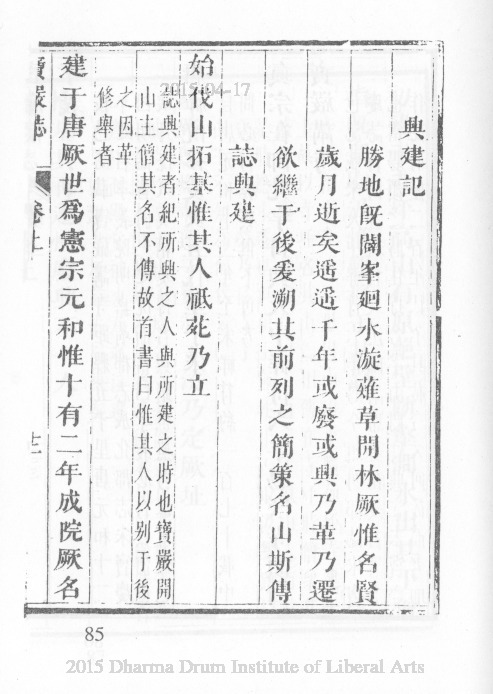 興建記
勝地旣闢峯廻水漩薙草開林厥惟名賢
歲月逝矣遥遥千年或廢或興乃革乃遷
欲繼于後爰溯其前列之簡策名山斯傳
誌興建
始伐山拓基惟其人祇苑乃立
誌興建者紀所興之人與所建之時也寶嚴開
山主僧其名不傳故首書曰惟其人以别于後
之因革
修舉者
建于唐厥世爲憲宗元和惟十有二年成院厥名
寶嚴誌
卷上
十二
2015-04-17
85
2015 Dharma Drum Institute of Liberal Arts